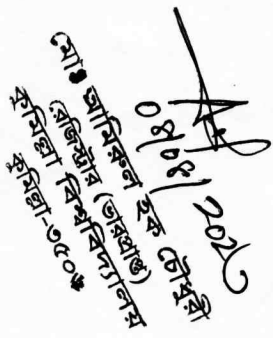 ০৪/০৪/২০২৬
মোঃ আমিরুল হক চৌধুরী
রেজিস্ট্রার (ভারপ্রাপ্ত)
কুমিল্লা বিশ্ববিদ্যালয়
কুমিল্লা-৩৫০৬